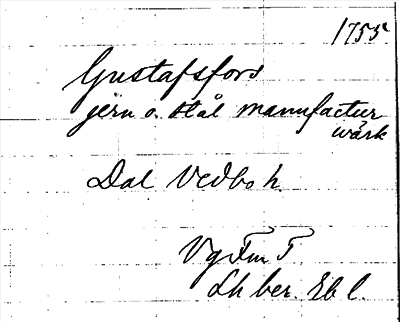 1755
Gustafsfors
jern o. stål manufactur
wärk
Dal Vedbo h.
Vg Fm T
Lh ber. Eb l.